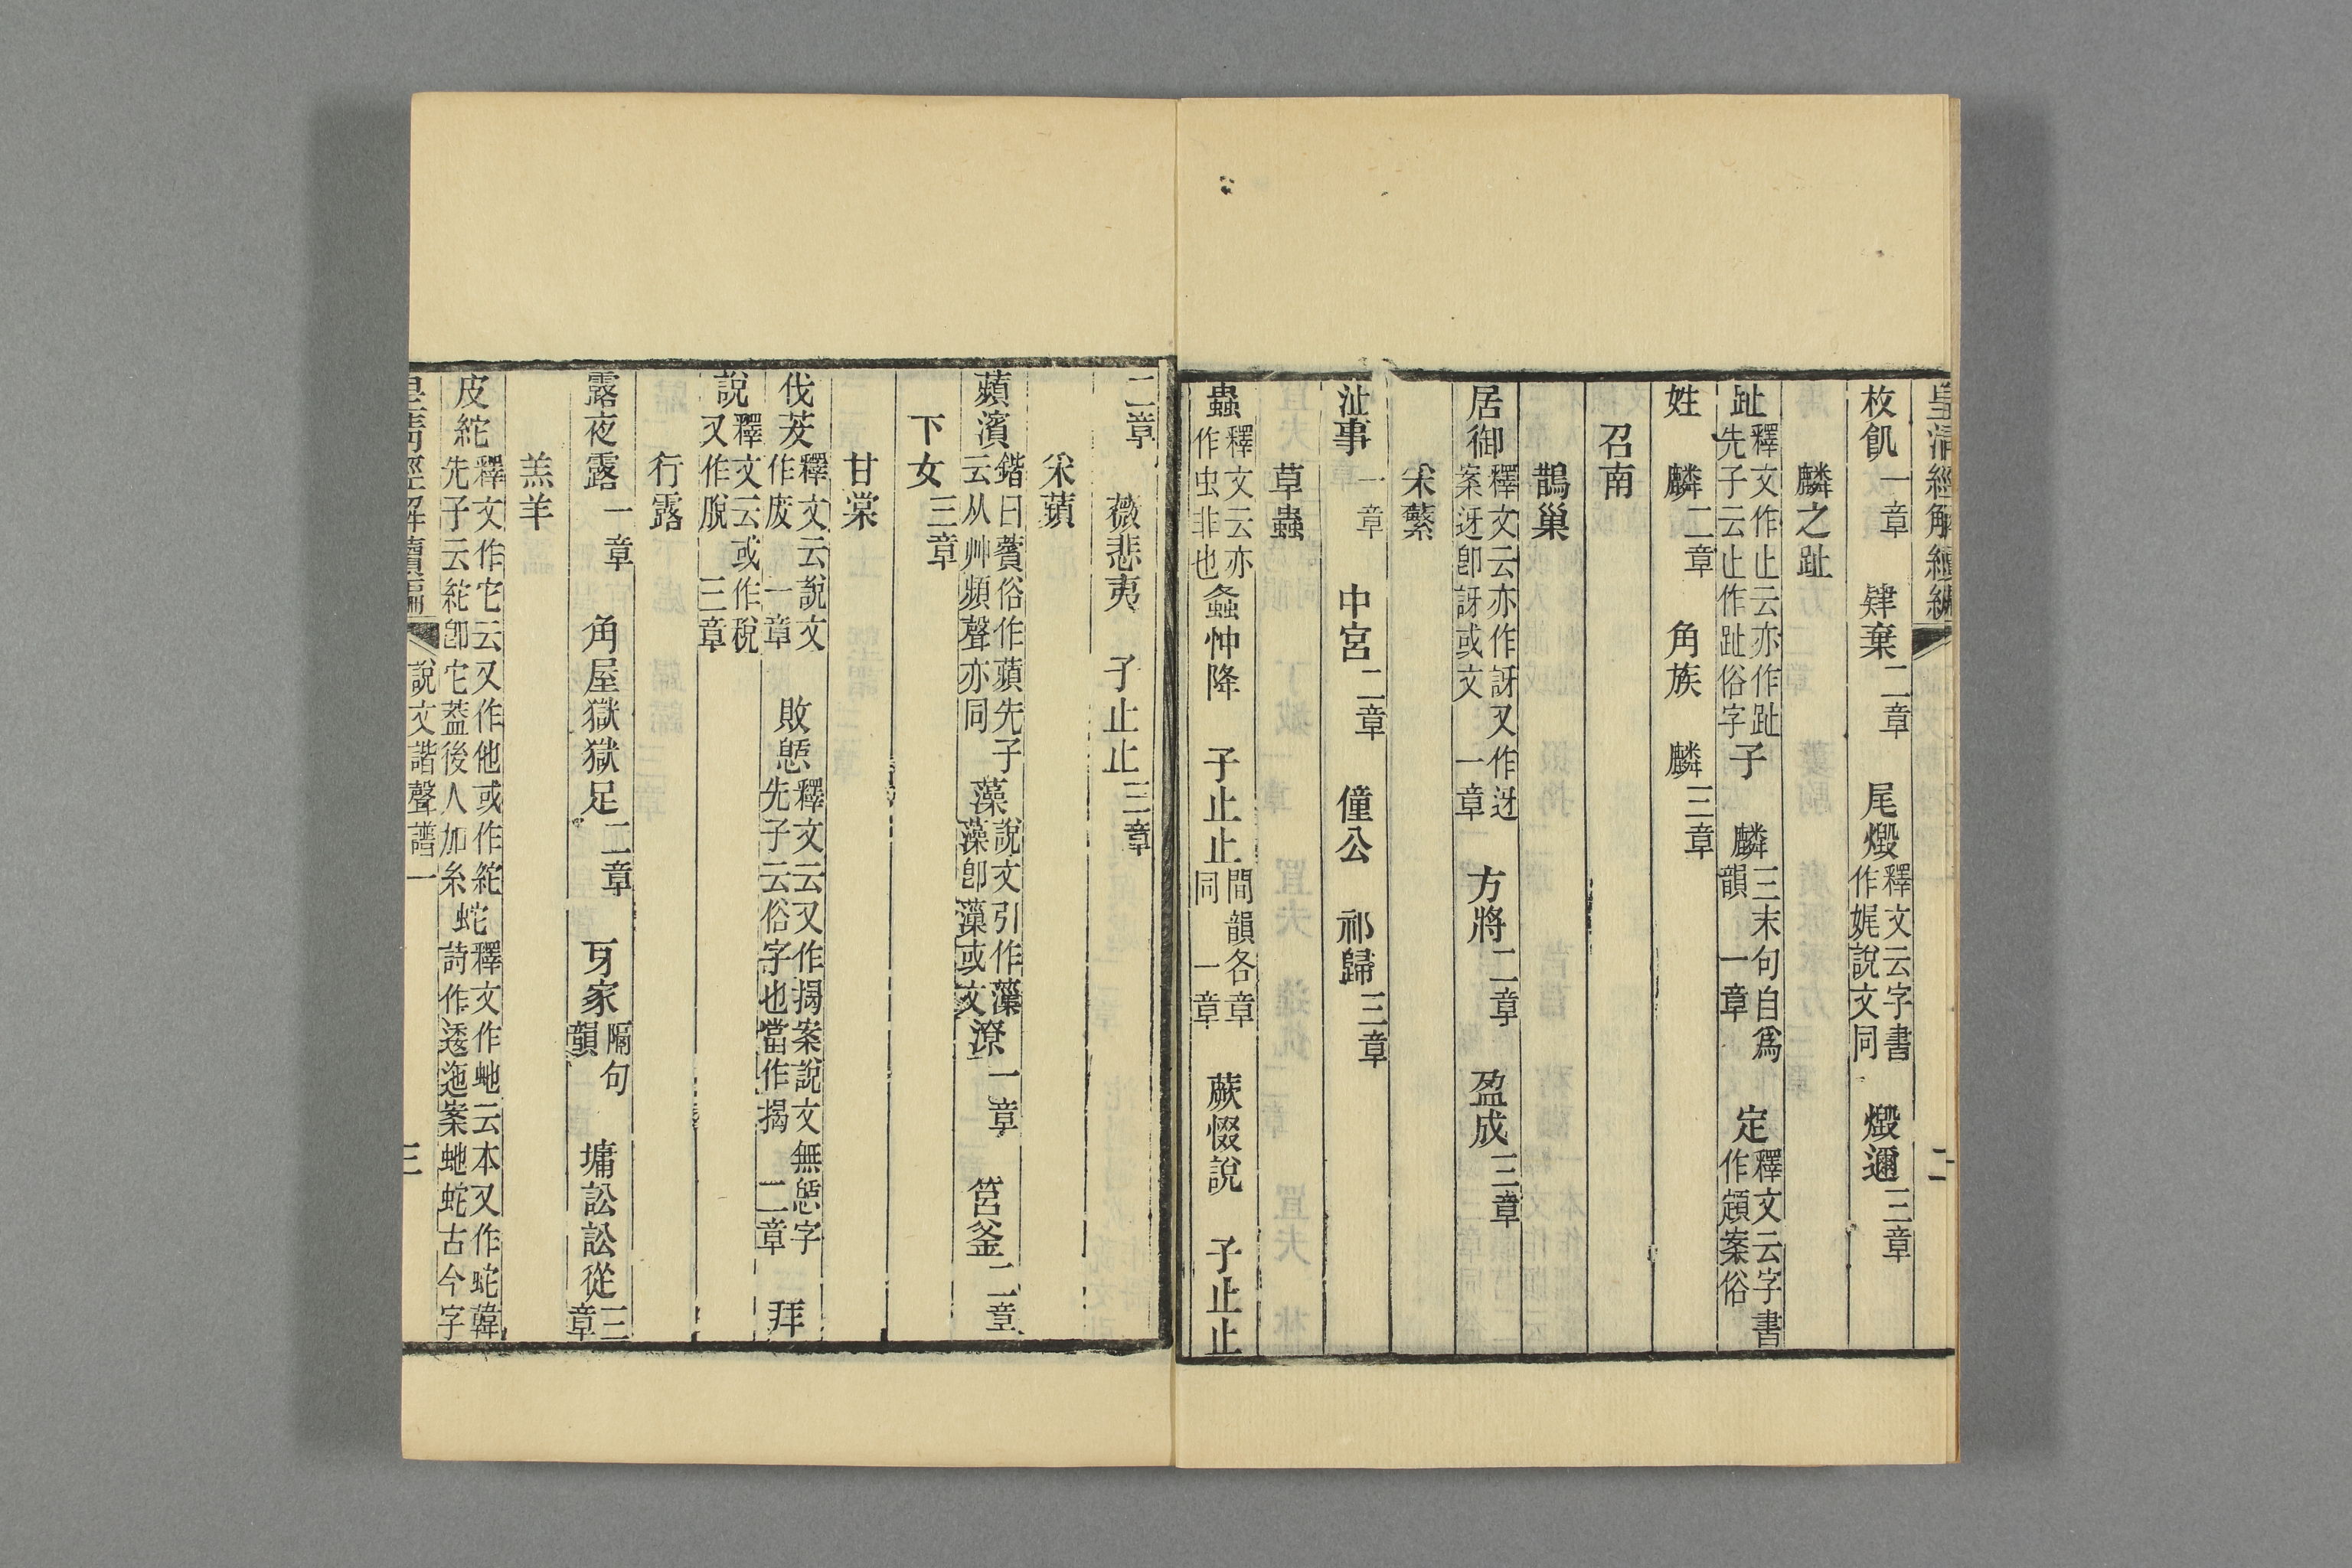 皇清經解續編 二
枚飢一章 肄棄二章 尾燬釋文云字書作娓說文同 燬邇三章
麟之趾
趾釋文作止云亦作趾先子云止作趾俗字子 麟三末句自爲韻一章 定釋文云字書作顁案俗
姓 麟二章 角族 麟三章
召南
鵲巢
居御釋文云亦作訝又作迓案迓卽訝或文一章 方將二章 盈成三章
采蘩
沚事一章 中宮二章 僮公 祁歸三章
草蟲
蟲釋文云亦作虫非也螽忡降 子止止間韻各章同一章 蕨惙說 子止止
二章 薇悲夷 子止止三章
采蘋
蘋濱鍇曰薲俗作蘋先子云从艸頻聲亦同 藻說文引作薻藻卽薻或文潦一章 筥釜二章
下女三章
甘棠
伐茇釋文云說文作废一章 敗憩釋文云又作揭案說文無憩字先子云俗字也當作揭二章 拜
說釋文云或作稅又作脫三章
行露
露夜露一章 角屋獄獄足二章 牙家隔句韻 墉訟訟從三章
羔羊
皮紽釋文作它云又作他或作紽先子云紽卽它葢後人加糸蛇釋文作虵云本又作蛇韓詩作逶迤案虵蛇古今字
皇清經解續編 說文諧聲譜一 三